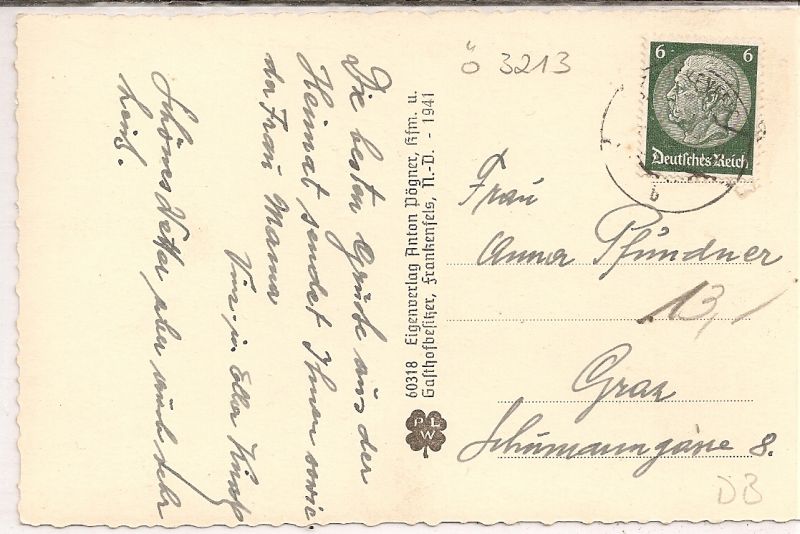 Die besten Grüße aus der
Heimat sendet Ihnen sowie
der Frau Mama
Ella
Schönes Wetter aber auch sehr
heiß.
60318 Eigenverlag Anton Pögner, Kfm. u.
Gasthofbesitzer, Frankenfels, N.-D. - 1941
P L W
Ö 3213
6 6
Deutsches Reich
b
Frau
Anna Pfundner
13,-
Graz
Schumanngasse 8.
DB